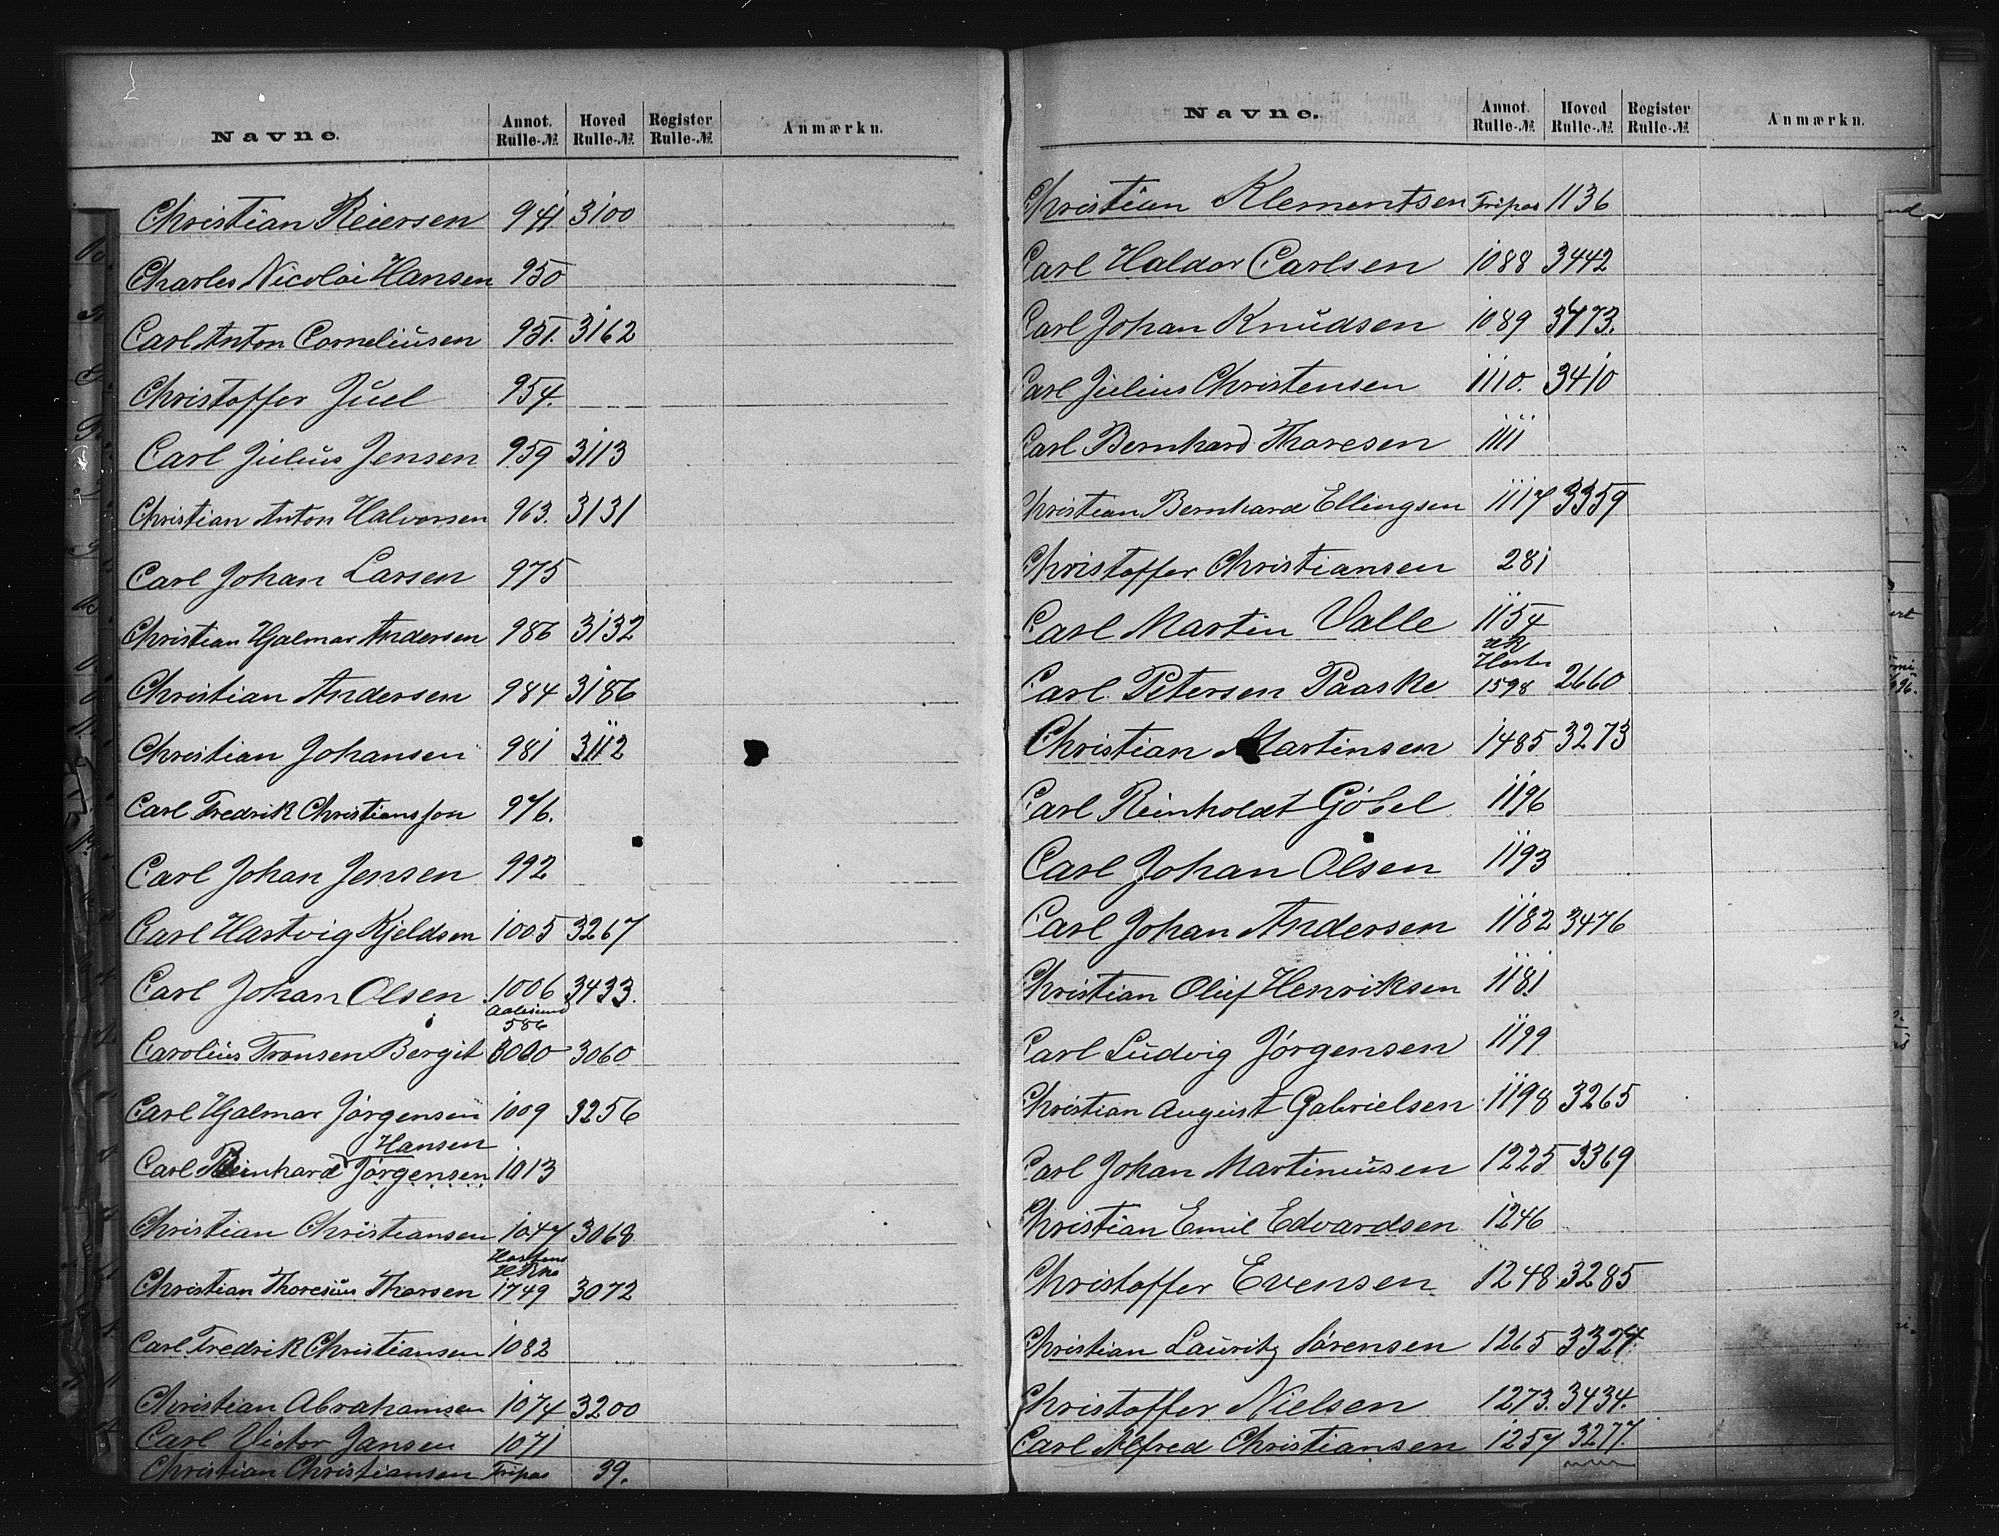 Navne. Annot. Rulle-№ Hoved Rulle-№ Register Rulle-№ Anmærkn.
Christian Reiersen 941. 3100
Charles Nicolai Hansen 950
Carl Anton Corneliusen 951. 3162
Christoffer Juel 954.
Carl Julius Jensen 959 3113
Christian Anton Halvorsen 963. 3131
Carl Johan Larsen 975
Christian Hjalmar Andersen 986 3132
Christian Andersen 984 3186
Christian Johansen 981 3112
Carl Fredrik Christiansson 976.
Carl Johan Jensen 992
Carl Hartvig Kjeldsen 1005 3267
Carl Johan Olsen 1006 3433.
Aalesund
586
Carolius Tronsen Bergit 3060
Carl Hjalmar Jørgensen 1009 3256
Hansen
Carl Reinhard Jørgensen 1013
Christian Christiansen 1047 3068
Hortens
Christian Thoresius Thorsen 1749 3072
Carl Fredrik Christiansen 1082
Christian Abrahamsen 1074 3200
Carl Victor Jansen 1071
Christian Christiansen Fripas 39.
Navne. Annot. Rulle-№ Hoved Rulle-№ Register Rulle-№ Anmærkn.
Christian Klementsen Fripas 1136
Carl Haldor Carlsen 1088 3442
Carl Johan Knudsen 1089
Carl Julius Christensen 1110. 3410
Carl Bernhard Thoresen 1111
Christian Bernhard Ellingsen 1117 3359
Christoffer Christiansen 281
Carl Martin Valle 1154
HR
Horten
Carl Petersen Paaske 1598 2660
Christian Martinsen 1485 3273
Carl Reinholdt Göbel 1196
Carl Johan Olsen 1193
Carl Johan Andersen 1182 3476
Christian Oluf Henriksen 1181
Carl Ludvig Jørgensen 1199
Christian August Gabrielsen 1198 3265
Carl Johan Martiniusen 1225 3369
Christian Emil Edvardsen 1246
Christoffer Evensen 1248. 3285
Christian Lauritz Sørensen 1265
Christoffer Nielsen 1273. 3434.
Carl Alfred Christiansen 1257 3277.